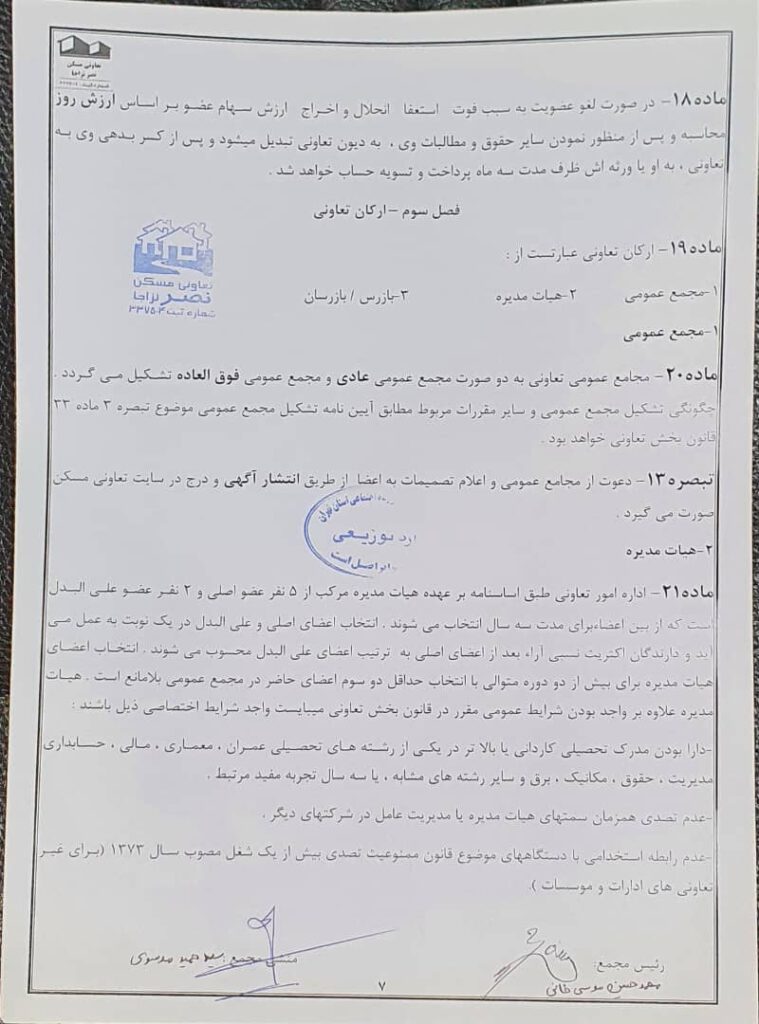 تعاونی مسکن
نصر نزاجا
ماده۱۸- در صورت لغو عضویت به سبب فوت استعفا انحلال و اخراج ارزش سهام عضو بر اساس ارزش روز
محاسبه و پس از منظور نمودن سایر حقوق و مطالبات وی ، به دیون تعاونی تبدیل میشود و پس از کسر بدهی وی به
تعاونی ، به او یا ورثه اش ظرف مدت سه ماه پرداخت و تسویه حساب خواهد شد .
فصل سوم – ارکان تعاونی
ماده۱۹- ارکان تعاونی عبارتست از :
تعاونی مسکن
نصر نزاجا
شماره ثبت ۳۳۷۵۰۴
۱-مجمع عمومی ۲-هیات مدیره ۳-بازرس / بازرسان
۱-مجمع عمومی
ماده۲۰- مجامع عمومی تعاونی به دو صورت مجمع عمومی عادی و مجمع عمومی فوق العاده تشکیل می گردد .
چگونگی تشکیل مجمع عمومی و سایر مقررات مربوط مطابق آیین نامه تشکیل مجمع عمومی موضوع تبصره ۳ ماده ۳۳
قانون بخش تعاونی خواهد بود .
تبصره۱۳- دعوت از مجامع عمومی و اعلام تصمیمات به اعضا از طریق انتشار آگهی و درج در سایت تعاونی مسکن
صورت می گیرد .
اجتماعی استان تهران
توزیعی
برابر اصل است
۲-هیات مدیره
ماده۲۱- اداره امور تعاونی طبق اساسنامه بر عهده هیات مدیره مرکب از ۵ نفر عضو اصلی و ۲ نفر عضو علی البدل
است که از بین اعضاءبرای مدت سه سال انتخاب می شوند . انتخاب اعضای اصلی و علی البدل در یک نوبت به عمل می
آید و دارندگان اکثریت نسبی آراء بعد از اعضای اصلی به ترتیب اعضای علی البدل محسوب می شوند . انتخاب اعضای
هیات مدیره برای بیش از دو دوره متوالی با انتخاب حداقل دو سوم اعضای حاضر در مجمع عمومی بلامانع است . هیات
مدیره علاوه بر واجد بودن شرایط عمومی مقرر در قانون بخش تعاونی میبایست واجد شرایط اختصاصی ذیل باشند :
-دارا بودن مدرک تحصیلی کاردانی یا بالا تر در یکی از رشته های تحصیلی عمران ، معماری ، مالی ، حسابداری
مدیریت ، حقوق ، مکانیک ، برق و سایر رشته های مشابه ، یا سه سال تجربه مفید مرتبط .
-عدم تصدی همزمان سمتهای هیات مدیره یا مدیریت عامل در شرکتهای دیگر .
-عدم رابطه استخدامی با دستگاههای موضوع قانون ممنوعیت تصدی بیش از یک شغل مصوب سال ۱۳۷۳ (برای غیر
تعاونی های ادارات و موسسات ).
رئیس مجمع: منشی مجمع : سید حمید موسوی
محمد حسین موسی خانی
۷